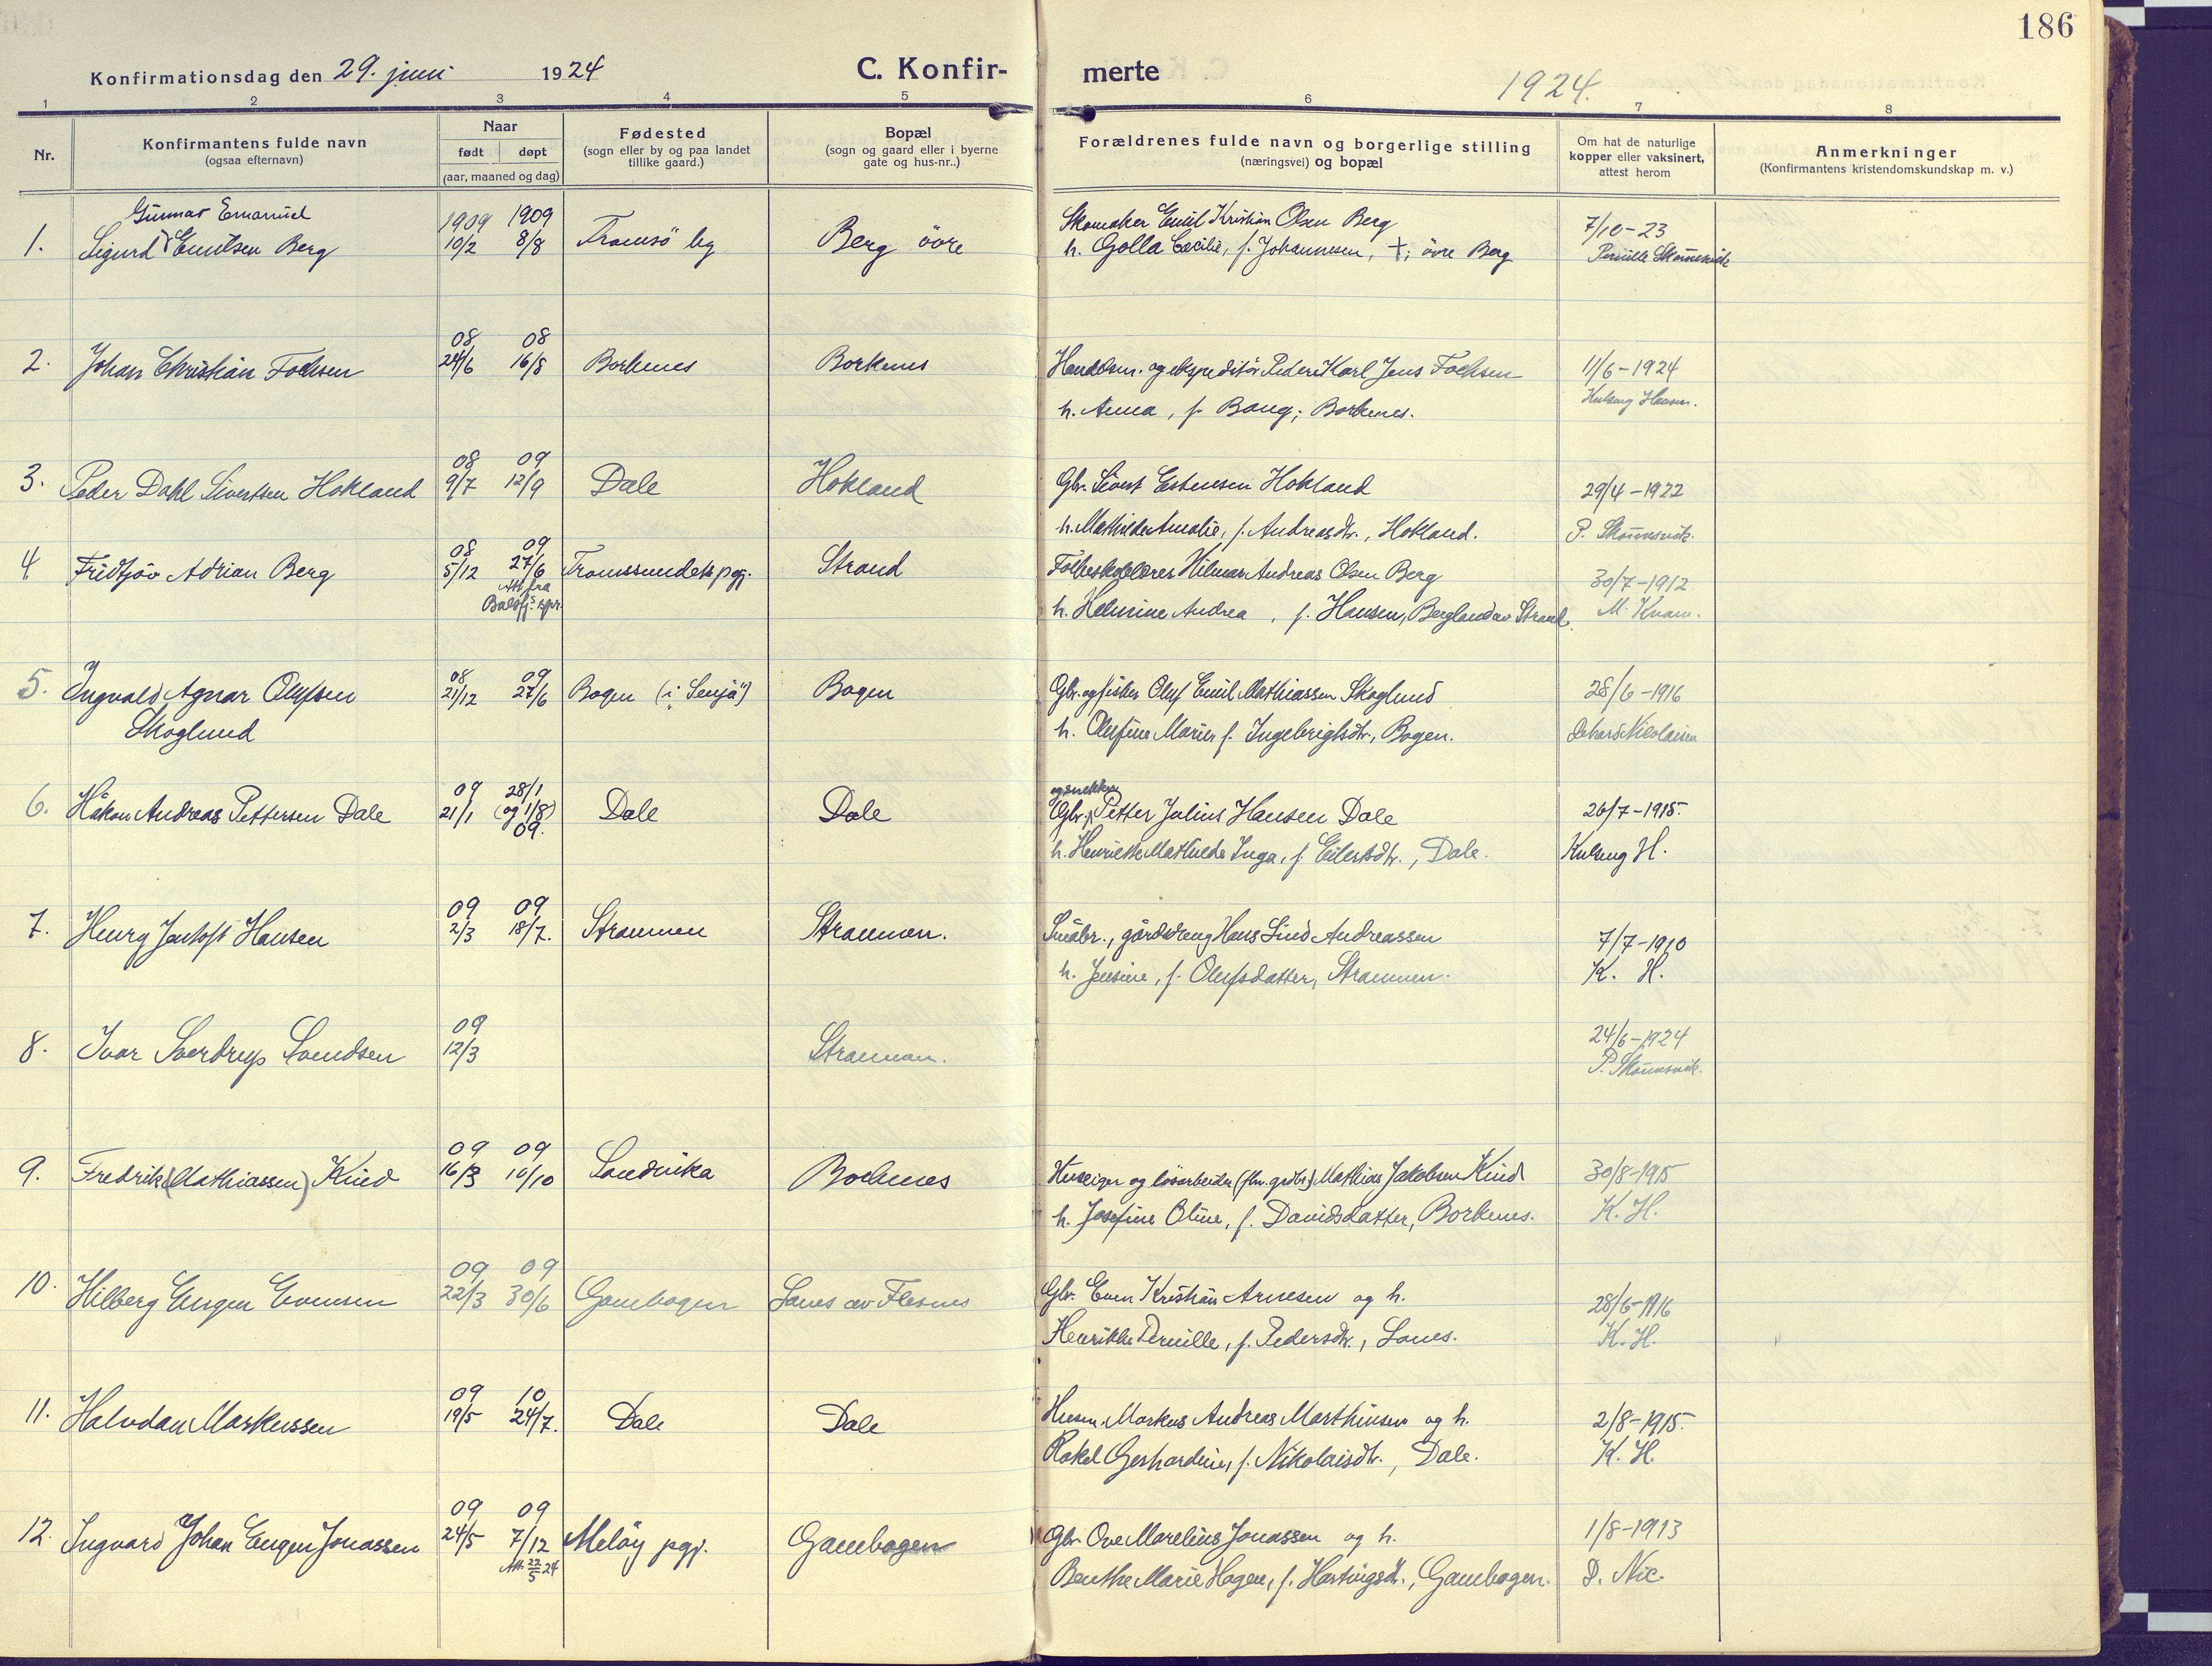 186
Konfirmationsdag den 29. juni 1924
C. Konfir-
merte
1924.
1 2 3 4 5 6 7 8
Nr.
Konfirmantens fulde navn
(ogsaa efternavn)
Naar
født døpt
(aar, maaned og dag)
Fødested
(sogn eller by og paa landet
tillike gaard.)
Bopæl
(sogn og gaard eller i byerne
gate og hus-nr..)
Forældrenes fulde navn og borgerlige stilling
(næringsvei) og bopæl
Om hat de naturlige
kopper eller vaksinert,
attest herom
Anmerkninger
(Konfirmantens kristendomskundskap m. v.)
Gunnar Emanuel
1909 1909
Skomaker Emil Kristian Olsen Berg
7/10-23
1. Sigurd Emilsen Berg 10/2 8/8 Tromsö by Berg övre
h. Golla Cecilie, f. Johannesen, †; övre Berg
Pernille Skönnesvik
08 08
2. Johan Christian Fochsen 24/6 16/8 Borkenes Borkenes
Handelsm. og ekspeditör Peder Karl Jens Fochsen
11/6-1924
h. Anna, f. Bang; Borkenes.
Kulseng Hansen.
08 09
3. Peder Dahl Sivertsen Hokland 9/7 12/9 Dale Hokland
Gbr. Sivert Estensen Hokland
29/4-1922
h. Mathilde Amalie, f. Andreasdtr., Hokland.
P. Skönnesvik.
08 09
4. Fridtjov Adrian Berg 5/12 27/6 Tromssundets pgj. Strand
Att. fra
Balsfj. spr.
Folkeskolelærer Hilmar Andreas Olsen Berg
30/7-1912
h. Helmine Andrea, f. Hansen, Bergland av Strand.
M. Kvam.
08 09
5. Ingvald Agnar Olufsen 21/12 27/6 Bogen (i "Senja") Bogen
Skoglund
Gbr. og fisker Oluf Emil Mathiassen Skoglund
28/6-1916
h. Olufine Marie, f. Ingebrigtsdtr., Bogen.
Nicolaisen
09 28/1
6. Håkon Andreas Pettersen Dale 21/1 (og 1/8) Dale Dale
09.
og snekker
Gbr. Petter Julius Hansen Dale
26/7-1915.
h. Henriette Mathilde Inga, f. Eilertsdtr., Dale.
Kulseng H.
09 09
7. Henry Jentoft Hansen 2/3 18/7. Straumen Straumen.
Småbr., gårdsdreng Hans Lind Andreassen
7/7-1910
h. Jensine, f. Olufsdatter, Straumen.
K. H.
09
8. Ivar Sverdrup Svendsen 12/3 Straumen.
24/6-1924
P. Skönnesvik.
09 09
9. Fredrik (Mathiassen) Kind 16/3 10/10 Sandvika Borkenes
Huseiger og lösarbeider (fhv. grdbr.) Mathias Jakobsen Kind
30/8-1915
h. Josefine Oline, f. Davidsdatter, Borkenes.
K. H.
09 09
10. Hilberg Eugen Evensen 22/3 30/6 Gambogen Sanes av Flesnes
Gbr. Even Kristian Arnesen og h.
28/6-1916
Henrikke Pernille, f. Pedersdtr., Sanes.
K. H.
09 10
11. Halvdan Markussen 19/5 24/7. Dale Dale
Husm. Markus Andreas Marthinsen og h.
2/8-1915.
Rakel Gerhardine, f. Nikolaisdtr., Dale.
K. H.
09 09
12. Ingvard Johan Eugen Jonassen 24/5 7/12 Melöy pgj. Gambogen
Att. 22/5 24
Gbr. Ove Marelius Jonassen og h.
1/8-1913
Benthe Marie Hagen, f. Hartvigsdtr., Gambogen.
D. Nic.